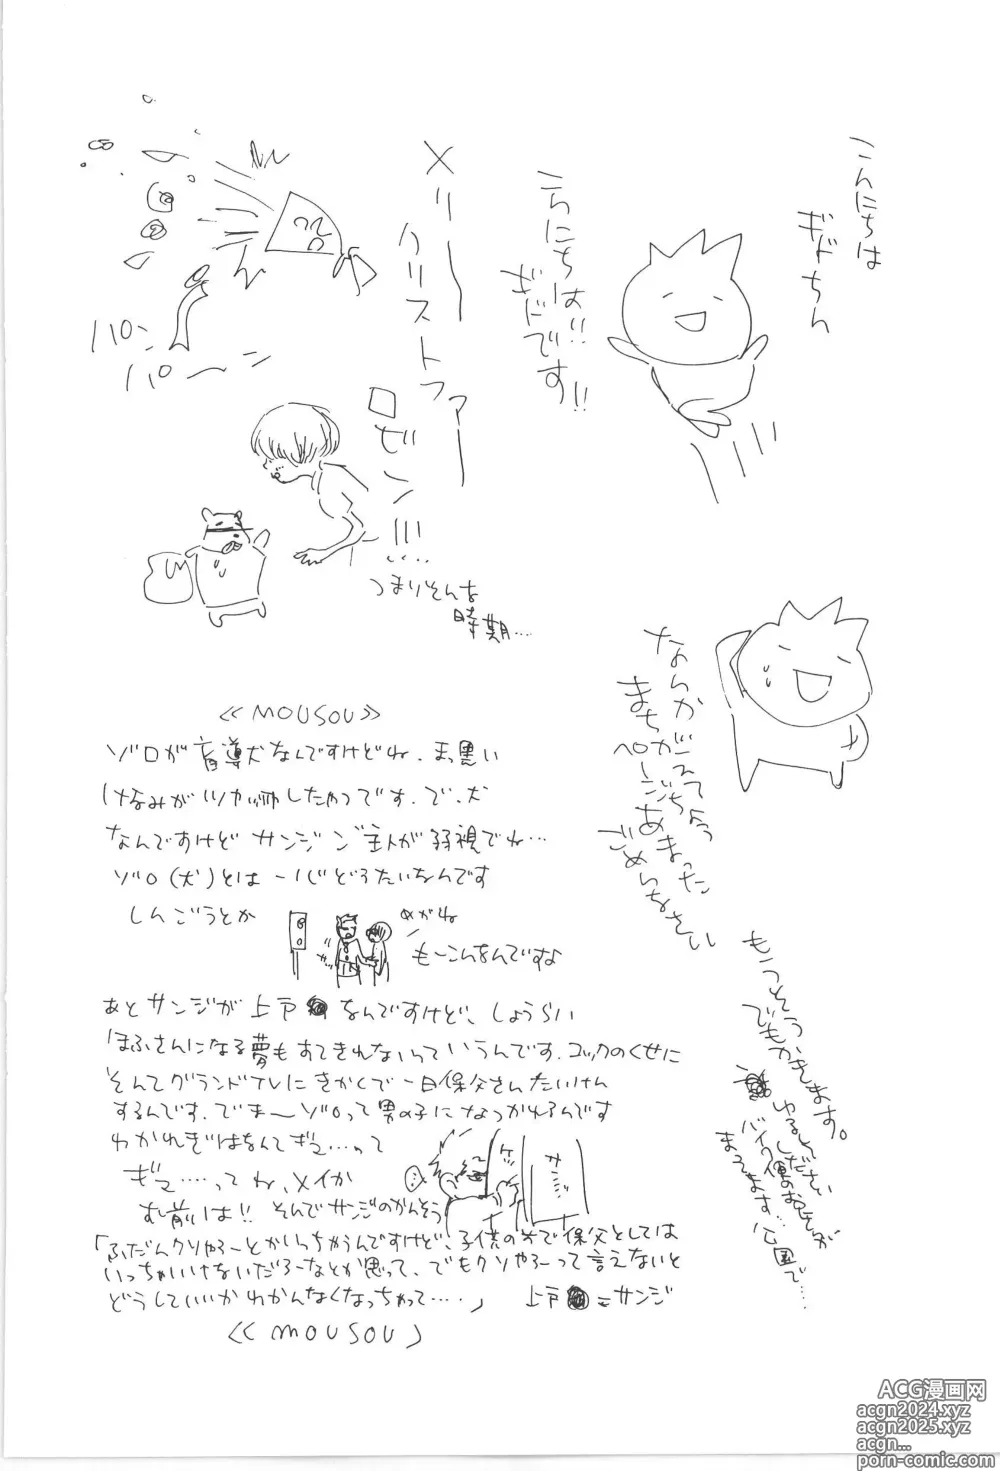 こんにちは
ギドちん
こんにちは!!
ギドです!!
メリー
クリストファー
ロビン!!!…
つまりそんな
時期…
パン
パーン
なんかまちがえて
ページちょっ
あまった
ごめんなさい
≪MOUSOU≫
ゾロが盲導犬なんですけどね、まっ黒い
で、犬
なんですけど サンジ ご主人が弱視でね…
ゾロ(犬)とは一心どうたいなんです
しんごうとか
めがね
もーこんなんですよ
あとサンジが上戸
なんですけど、しょうらい
ほふさんになる夢もすてきれないっていうんです。コックのくせに
そんでグランドTLにきかくで一日保父さんたいけん
するんです。でまーゾロって男の子になつかれるんです
わかれぎはなんてギュ…って
ギュ…ってね、メイか
む前は!! そんでサンジのかんそう
サンジ
「ふだんクソやろーとかいっちゃうんですけど、子供の前で保父としては
いっちゃいけないだろーなとか思って、でもクソやろーって言えないと
どうしていいかわかんなくなっちゃって…。」
上戸
=サンジ
≪MOUSOU》
もうそう
でもかきます。
ゆるしてください
バイク便のお兄さんが
まってます…公園で…
ACG漫画网
acgn2024.xyz
acgn2025.xyz
acgn...
porn-comic.com